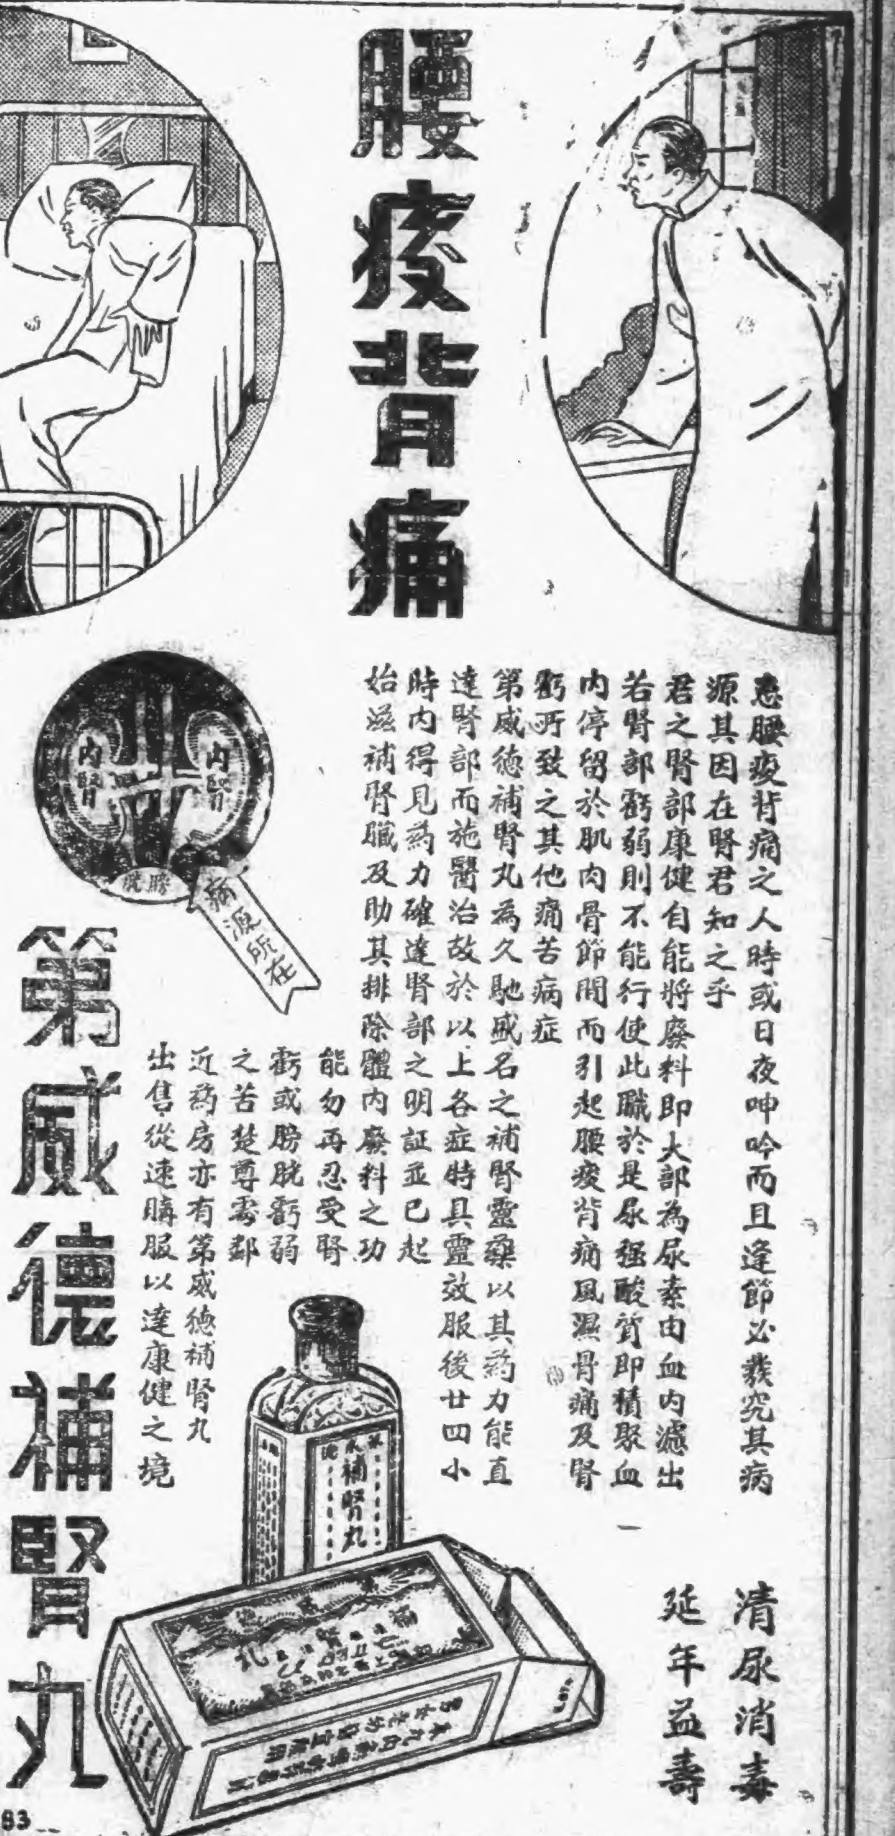 腰痠背痛
患腰痠背痛之人時或日夜呻吟而且逢節必發究其病
源其因在腎君知之乎
君之腎部康健自能將廢料即大部為尿素由血內濾出
若腎部虧弱則不能行使此職於是尿强酸質即積聚血
內停留於肌肉骨節間而引起腰痠背痛風濕骨痛及腎
虧所致之其他痛苦病症
第威德補腎丸為久馳威名之補腎靈藥以其药力能直
達腎部而施醫治故於以上各症時具靈效服後廿四小
時內得見药力確達腎部之明証並已起
始滋補腎臟及助其排除體內廢料之功
能勿再忍受腎
虧或膀胱虧弱
之苦楚尊處鄰
近药房亦有第威德補腎丸
出售從速購服以達康健之境
內腎
內腎
膀胱
病源所在
清尿消毒
延年益壽
第威德補腎丸
補腎丸
83